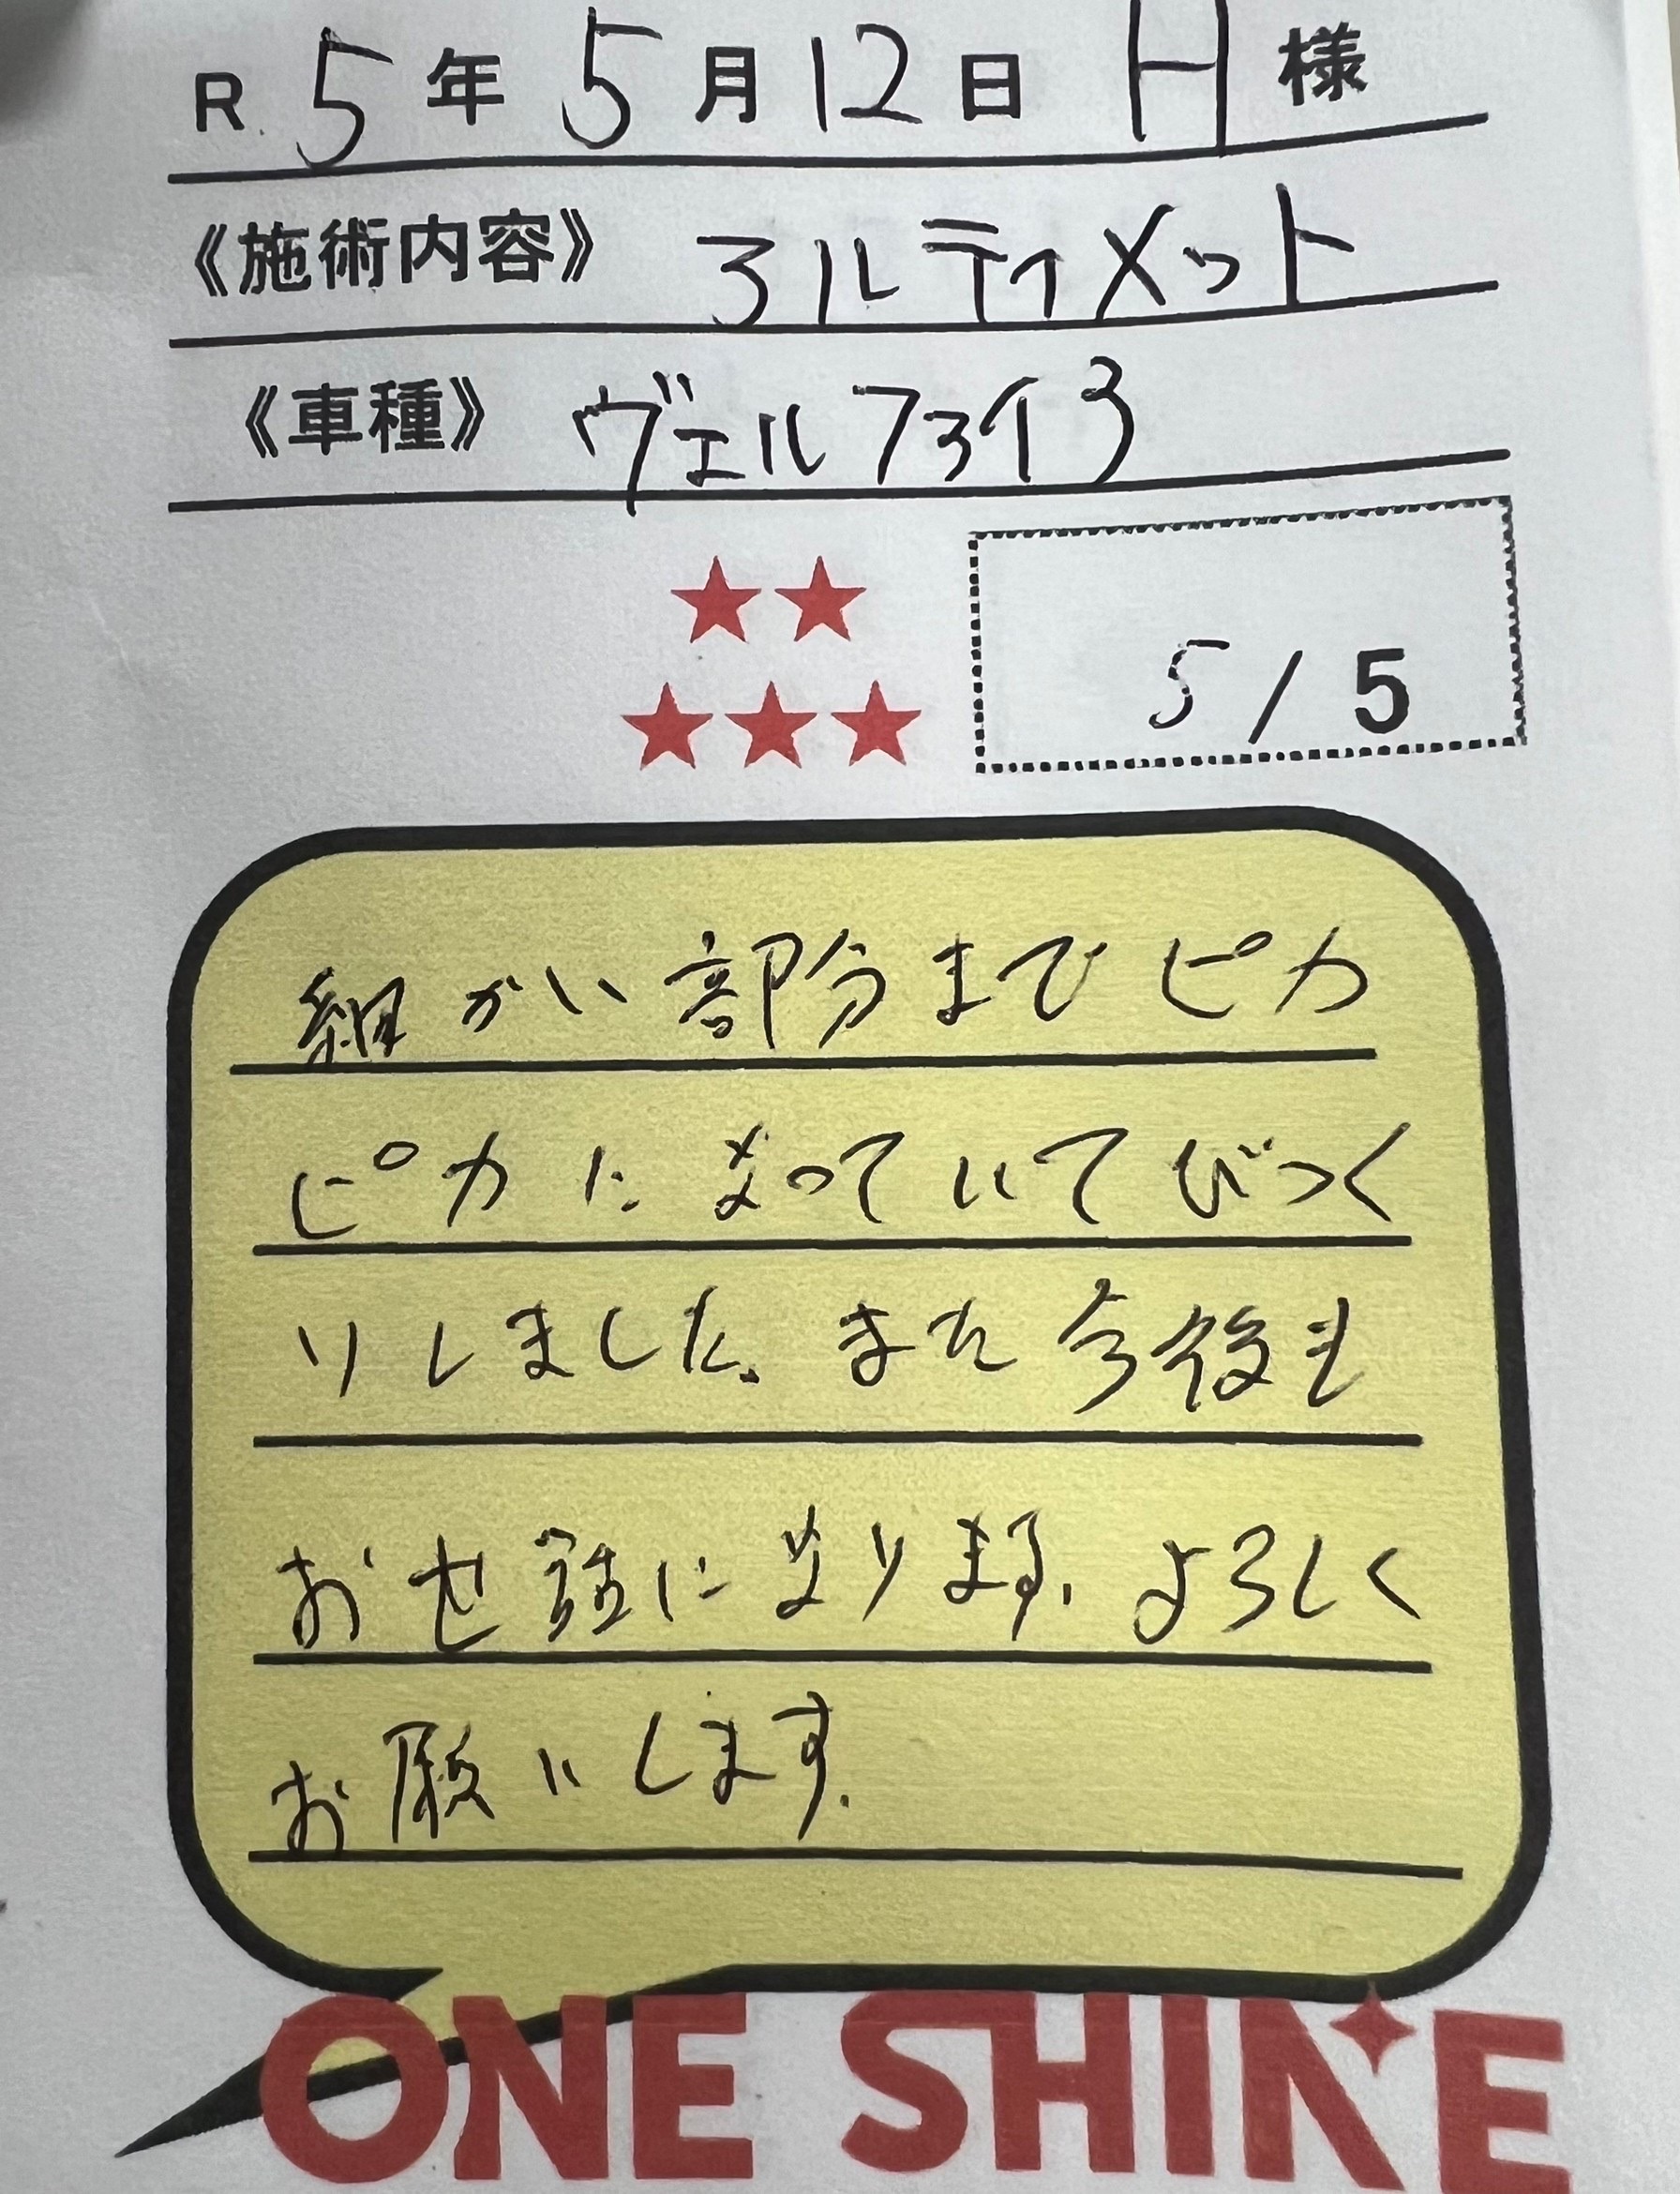 R 5年 5月 12日 H 様
《施術内容》 アルティメット
《車種》 ヴェルファイア
5 / 5
細かい部分までピカ
ピカになっていてびっく
りしました。また今後も
お世話になります。よろしく
お願いします。
ONE SHINE